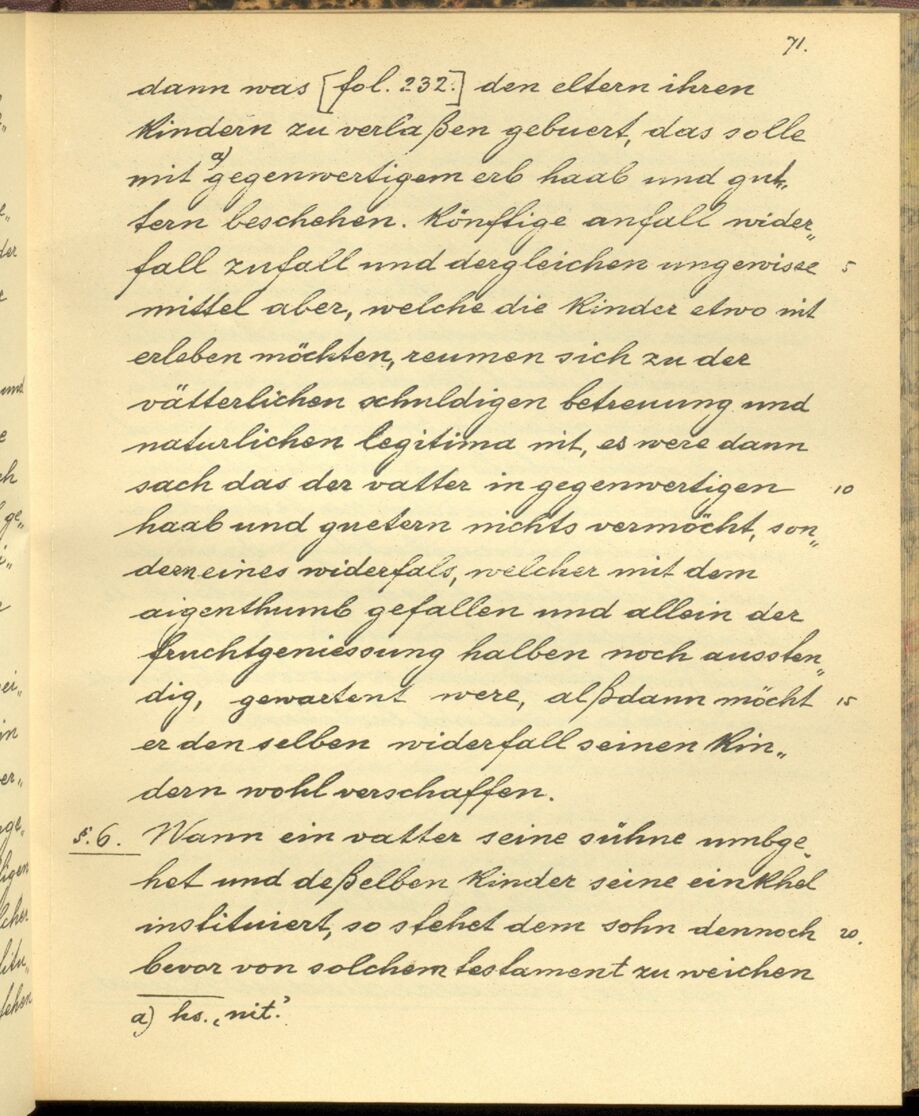 71.
dann was [fol. 232.] den eltern ihren
kindern zu verlaßen gebuert, das solle
mit a) gegenwertigem erb haab und gut„
tern beschehen. Könftige anfall wider„
fall zufall und dergleichen ungewisse 5
mittel aber, welche die kinder etwo nit
erleben möchten, reumen sich zu der
vätterlichen schuldigen betreuung und
naturlichen legitima nit, es were dann
sach das der vatter in gegenwertigen 10
haab und guetern nichts vermöcht, son„
dern eines widerfals, welcher mit dem
aigenthumb gefallen und allein der
fruchtgeniessung halben noch aussten„
dig, gewartent were, alßdann möcht 15
er den selben widerfall seinen kin„
dern wohl verschaffen.
§. 6. Wann ein vatter seine sühne umbge„
het und deßelben kinder seine einkhel
instituiert, so stehet dem sohn dennoch 20.
bevor von solchem testament zu weichen
a) hs. „nit“.